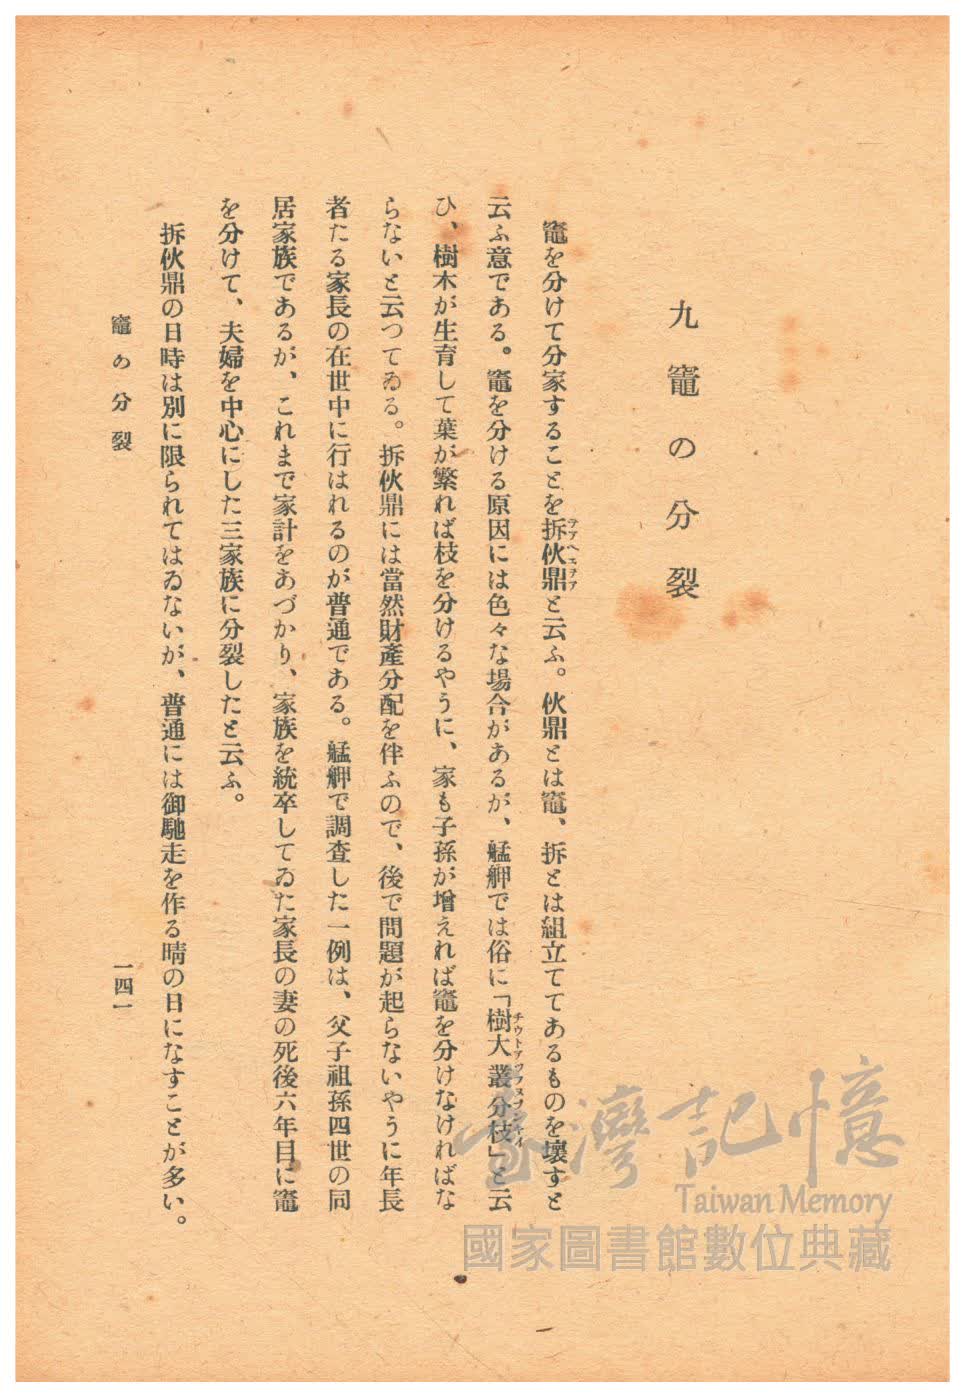 九 竈の分裂
竈を分けて分家することを拆伙鼎と云ふ。伙鼎とは竈、拆とは組立ててあるものを壞すと
云ふ意である。竈を分ける原因には色々な場合があるが、艋舺では俗に「樹大叢分枝」と云
ひ、樹木が生育して葉が繁れば枝を分けるやうに、家も子孫が增えれば竈を分けなければな
らないと云つてゐる。拆伙鼎には當然財產分配を伴ふので、後で問題が起らないやうに年長
者たる家長の在世中に行はれるのが普通である。艋舺で調査した一例は、父子祖孫四世の同
居家族であるが、これまで家計をあづかり、家族を統卒してゐた家長の妻の死後六年目に竈
を分けて、夫婦を中心にした三家族に分裂したと云ふ。
拆伙鼎の日時は別に限られてはゐないが、普通には御馳走を作る晴の日になすことが多い。
竈の分裂
一四一
臺灣記憶
Taiwan Memory
國家圖書館數位典藏